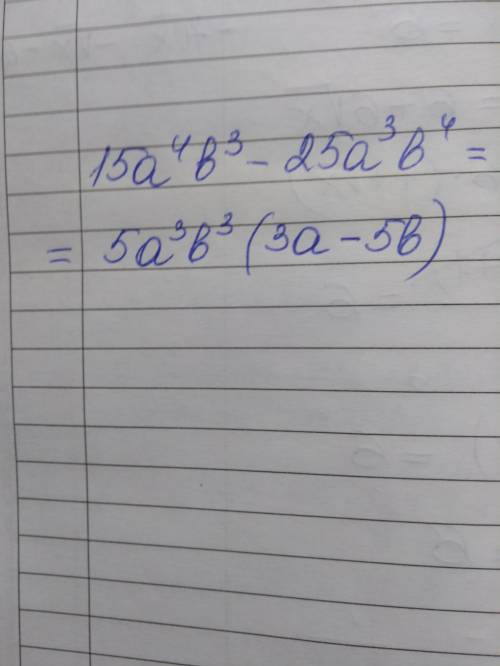 15a⁴b³ - 25a³b⁴ =
= 5a³b³ (3a - 5b)